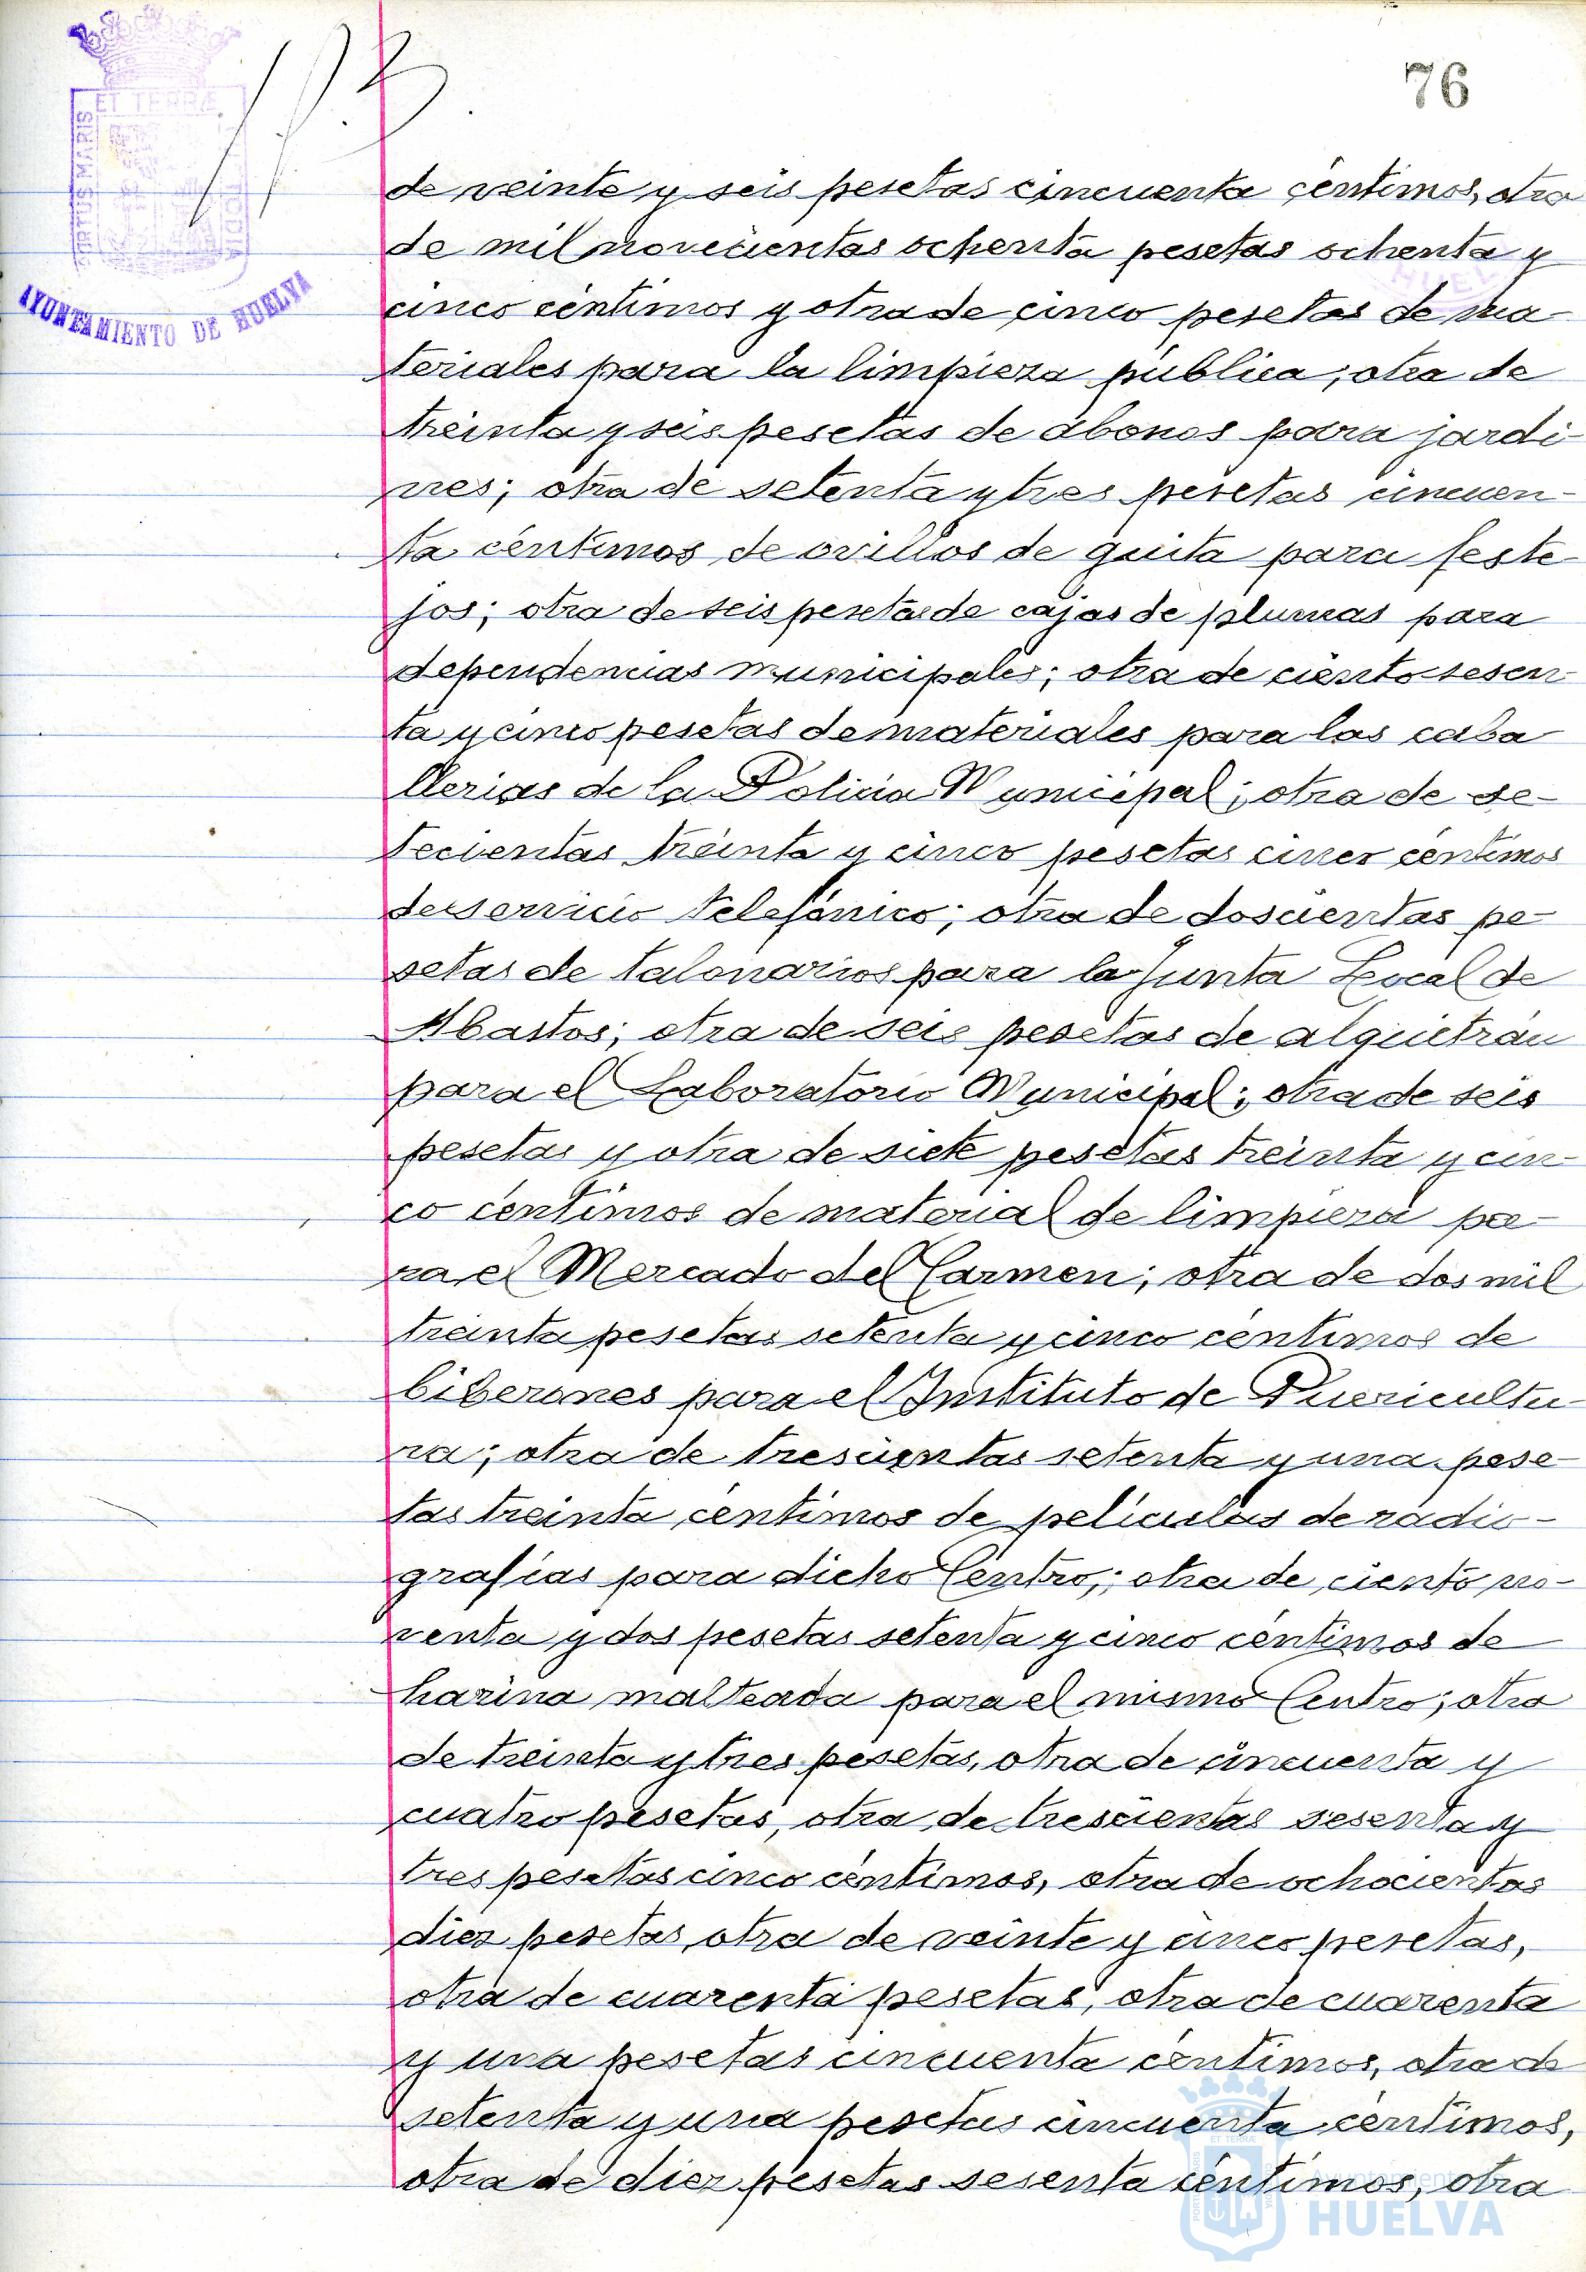 76
113
ET TERRAE
PORTUS MARIS
AYUNTAMIENTO DE HUELVA
de veinte y seis pesetas cincuenta céntimos, otra
de mil novecientas ochenta pesetas ochenta y
cinco céntimos y otra de cinco pesetas de ma-
teriales para la limpieza pública; otra de
treinta y seis pesetas de abonos para jardi-
nes; otra de setenta y tres pesetas cincuen-
ta céntimos de ovillos de guita para feste-
jos; otra de seis pesetas de cajas de plumas para
dependencias municipales; otra de ciento sesen-
ta y cinco pesetas de materiales para las caba
llerias de la Policia Municipal; otra de se-
tecientas treinta y cinco pesetas cinco céntimos
de servicio telefónico; otra de doscientas pe-
setas de talonarios para la Junta Local de
Abastos; otra de seis pesetas de alquitrán
para el Laboratorio Municipal; otra de seis
pesetas y otra de siete pesetas treinta y cin-
co céntimos de material de limpieza pa-
ra el Mercado del Carmen; otra de dos mil
treinta pesetas setenta y cinco céntimos de
biberones para el Instituto de Puericultu-
ra; otra de trescientas setenta y una pese-
tas treinta céntimos de películas de radio-
grafías para dicho Centro; otra de ciento no-
venta y dos pesetas setenta y cinco céntimos de
harina malteada para el mismo Centro; otra
de treinta y tres pesetas, otra de cincuenta y
cuatro pesetas, otra de trescientas sesenta y
tres pesetas cinco céntimos, otra de ochocientas
diez pesetas, otra de veinte y cinco pesetas,
otra de cuarenta pesetas, otra de cuarenta
y una pesetas cincuenta céntimos, otra de
setenta y una pesetas cincuenta céntimos,
otra de diez pesetas sesenta céntimos, otra
Ayuntamiento de
HUELVA